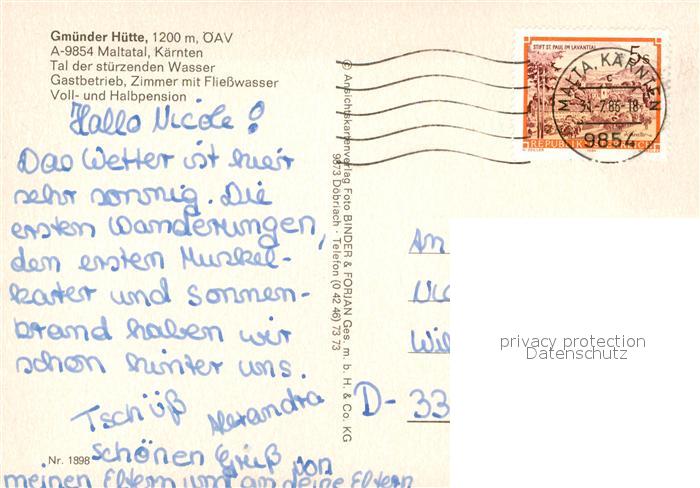 Gmünder Hütte, 1200 m, ÖAV
A-9854 Maltatal, Kärnten
Tal der stürzenden Wasser
Gastbetrieb, Zimmer mit Fließwasser
Voll- und Halbpension
Hallo Nicole!
Das Wetter ist hier
sehr sonnig. Die
ersten Wanderungen,
den ersten Muskel-
kater und Sonnen-
brand haben wir
schon hinter uns.
Tschüß Alexandra
schönen Gruß von
meinen Eltern und an deine Eltern
Nr. 1898
© Ansichtskartenverlag Foto BINDER & FORJAN Ges. m. b. H. & Co. KG
9873 Döbriach · Telefon (0 42 46) 73 73
STIFT ST. PAUL IM LAVANTTAL
5s
REPUBLIK
MALTA, KÄRNTEN
9854
An
Nic
Wil
D- 33
privacy protection
Datenschutz